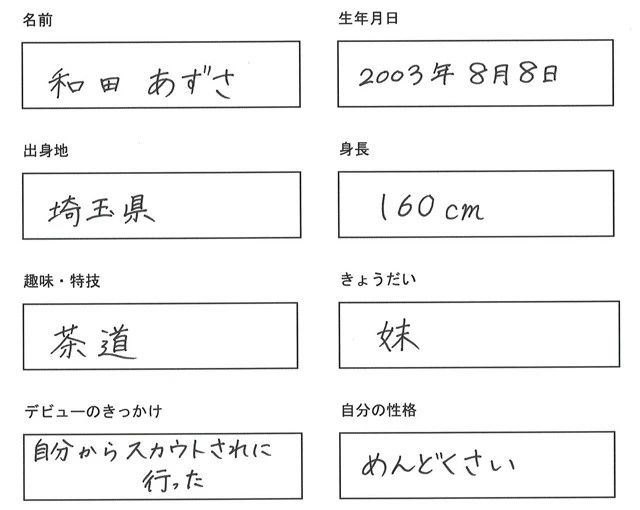 名前
和田 あずさ
生年月日
2003年 8月8日
出身地
埼玉県
身長
160cm
趣味・特技
茶道
きょうだい
妹
デビューのきっかけ
自分からスカウトされに
行った
自分の性格
めんどくさい